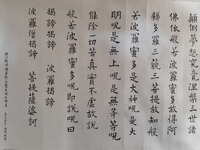 顛倒夢想究竟涅槃三世諸
佛依般若波羅蜜多故得阿
耨多羅三藐三菩提故知般
若波羅蜜多是大神呪是大
明呪是無上呪是無等等呪
能除一切苦真實不虛故說
般若波羅蜜多呪即說呪曰
揭諦揭諦 波羅揭諦
波羅僧揭諦 菩提薩婆訶